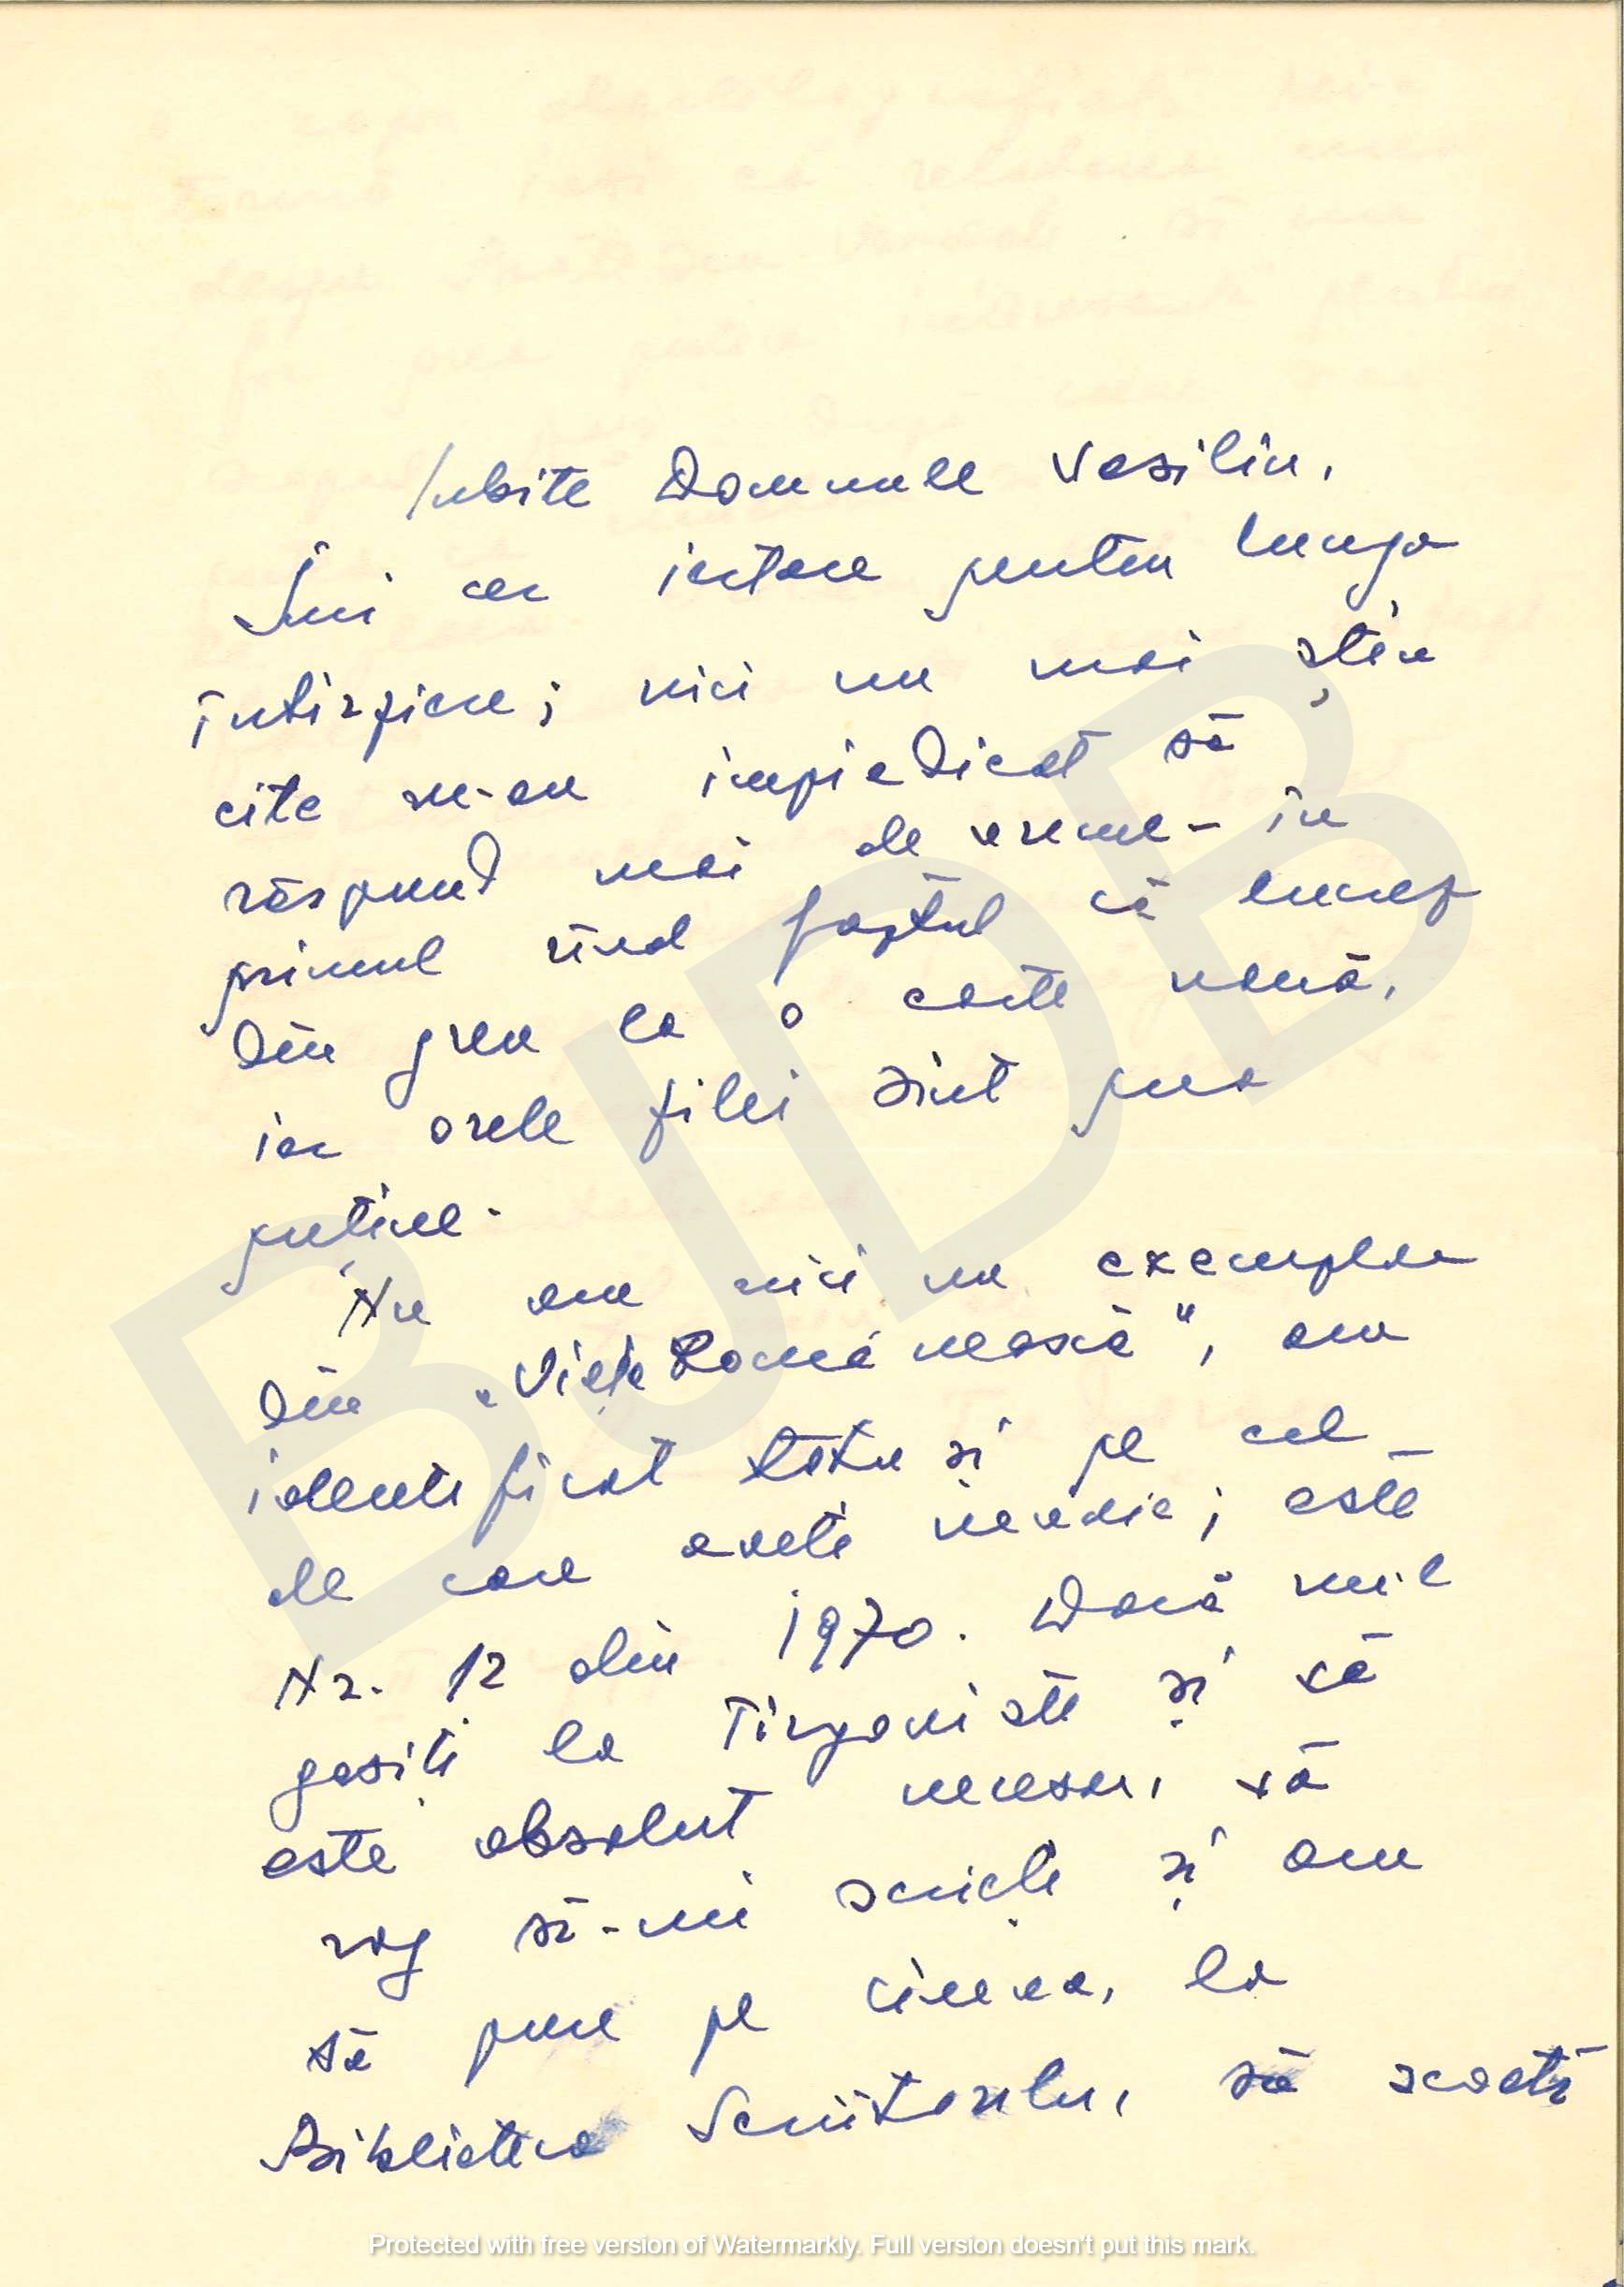 Iubite Domnule Vasiliu,
Îmi cer iertare pentru lunga
întîrziere; nici nu mai știu
cîte m-au impiedicat să
răspund mai de vreme - în
primul rînd faptul că lucrez
din greu la o carte nouă,
iar orele zilei sînt prea
puține.
Nu am nici un exemplar
din „Viața Românească", am
identificat totuși pe cel
de care aveți nevoie; este
Nr. 12 din 1970. Dacă nu-l
gasiți la Tîrgoviște și vă
este absolut necesar, vă
rog să-mi scrieți și am
să pun pe cineva, la
Biblioteca Scriitorilor, să scoată
BJDB
Protected with free version of Watermarkly. Full version doesn't put this mark.